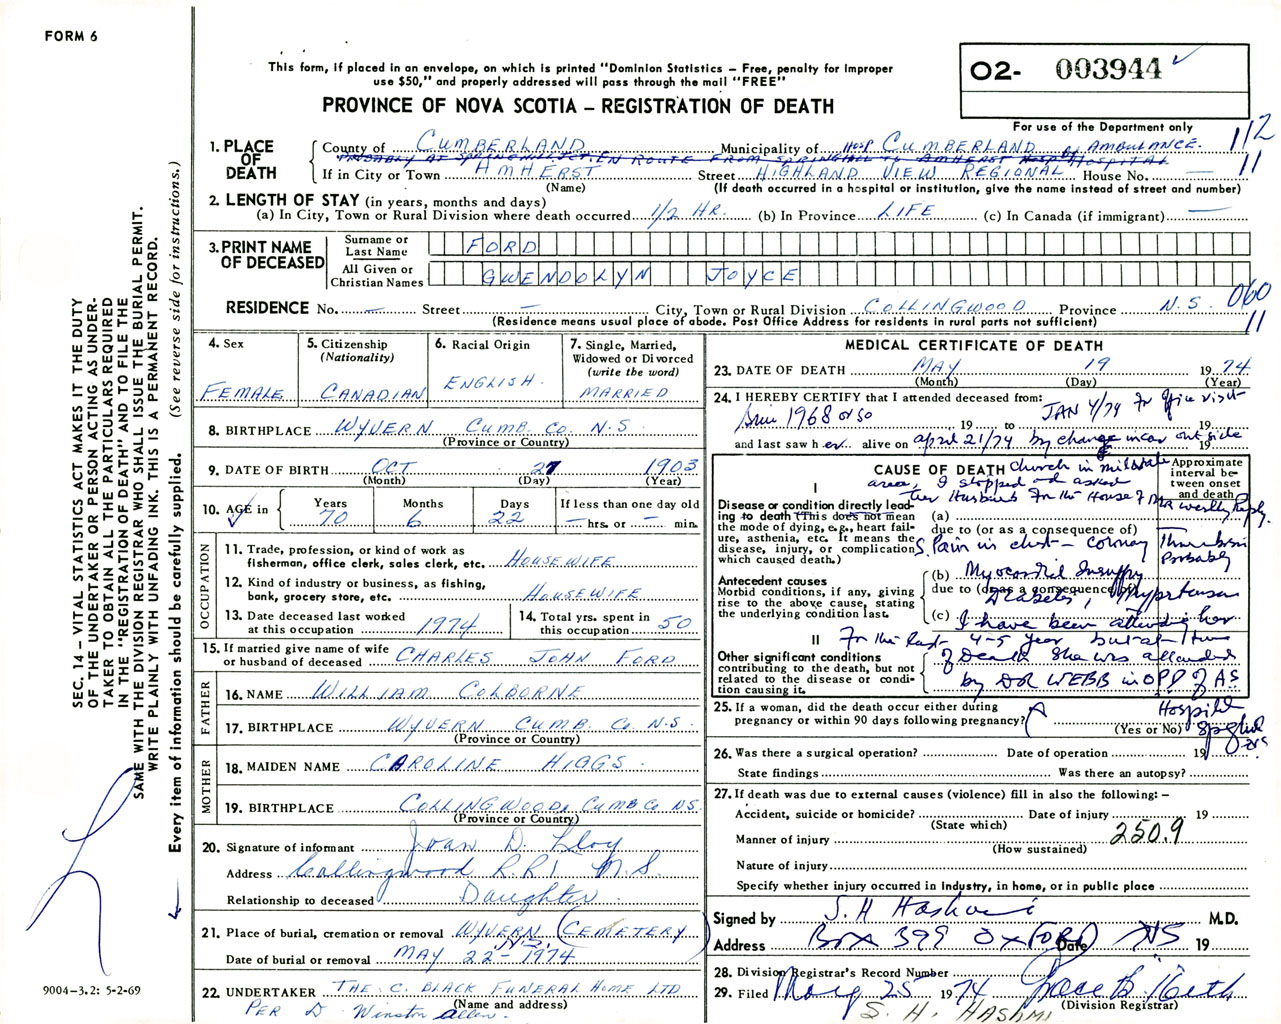 FORM 6
This form, if placed in an envelope, on which is printed "Dominion Statistics – Free, penalty for improper
use $50," and properly addressed will pass through the mail "FREE"
PROVINCE OF NOVA SCOTIA – REGISTRATION OF DEATH
O2- 003944
For use of the Department only
112
11
1. PLACE OF DEATH
County of CUMBERLAND Municipality of CUMBERLAND AMBULANCE
PROBABLY AT SPRINGHILL JCT. EN ROUTE FROM SPRINGHILL TO AMHERST HOSPITAL
If in City or Town AMHERST Street HIGHLAND VIEW REGIONAL House No. —
(Name) (If death occurred in a hospital or institution, give the name instead of street and number)
2. LENGTH OF STAY (in years, months and days)
(a) In City, Town or Rural Division where death occurred 1/2 HR. (b) In Province LIFE (c) In Canada (if immigrant) —
3. PRINT NAME OF DECEASED
Surname or Last Name FORD
All Given or Christian Names GWENDOLYN JOYCE
060
11
RESIDENCE No. — Street — City, Town or Rural Division COLLINGWOOD Province N.S.
(Residence means usual place of abode. Post Office Address for residents in rural parts not sufficient)
4. Sex
FEMALE
5. Citizenship
(Nationality)
CANADIAN
6. Racial Origin
ENGLISH.
7. Single, Married,
Widowed or Divorced
(write the word)
MARRIED
8. BIRTHPLACE WYVERN CUMB. CO. N.S.
(Province or Country)
9. DATE OF BIRTH OCT 27 1903
(Month) (Day) (Year)
10. AGE in
Years Months Days If less than one day old
70 6 22 — hrs. or — min.
OCCUPATION
11. Trade, profession, or kind of work as
fisherman, office clerk, sales clerk, etc. HOUSEWIFE
12. Kind of industry or business, as fishing,
bank, grocery store, etc. HOUSEWIFE
13. Date deceased last worked
at this occupation 1974
14. Total yrs. spent in
this occupation 50
15. If married give name of wife
or husband of deceased CHARLES JOHN FORD
FATHER
16. NAME WILLIAM COLBORNE
17. BIRTHPLACE WYVERN CUMB. CO. N.S.
(Province or Country)
MOTHER
18. MAIDEN NAME CAROLINE HIGGS
19. BIRTHPLACE COLLINGWOOD, CUMB CO NS.
(Province or Country)
20. Signature of informant Joan D. Lloy
Address Collingwood R.R.1 N.S
Relationship to deceased Daughter
21. Place of burial, cremation or removal WYVERN (CEMETERY)
N.S.
Date of burial or removal MAY 22 – 1974
22. UNDERTAKER THE C. BLACK FUNERAL HOME LTD
(Name and address)
PER D. Winston Allen.
MEDICAL CERTIFICATE OF DEATH
23. DATE OF DEATH MAY 19 1974
(Month) (Day) (Year)
24. I HEREBY CERTIFY that I attended deceased from:
Since 1968 or so 19 to JAN 4/74 for office visit 19
and last saw her alive on april 21/74 by chance in car outside 19
CAUSE OF DEATH church in
area, I stopped and asked
her Husband for the House of
Approximate
interval be-
tween onset
and death
I
Disease or condition directly lead-
ing to death (This does not mean
the mode of dying, e.g., heart fail-
ure, asthenia, etc. It means the
disease, injury, or complication
which caused death.)
(a)
due to (or as a consequence of)
Pain in chest – Coronary Thrombosis
Probably
Antecedent causes
Morbid conditions, if any, giving
rise to the above cause, stating
the underlying condition last.
(b) Myocardial Insuffy
due to (or as a consequence of)
Diabetes, Hypertension
(c) I have been attending her
II For the last 4-5 year but at time
Other significant conditions
contributing to the death, but not
related to the disease or condi-
tion causing it.
of Death She was attended
by DR WEBB in OPD of A S
Hospital
25. If a woman, did the death occur either during
pregnancy or within 90 days following pregnancy?
(Yes or No)
26. Was there a surgical operation? Date of operation 19
State findings Was there an autopsy?
27. If death was due to external causes (violence) fill in also the following: –
Accident, suicide or homicide? Date of injury 19
(State which)
Manner of injury 250.9
(How sustained)
Nature of injury
Specify whether injury occurred in industry, in home, or in public place
Signed by S. H Hashmi M.D.
Address Box 399 OXFORD NS Date 19
28. Division Registrar's Record Number
29. Filed May 25 1974 Grace B. Keith
(Division Registrar)
S. H. HASHMI
SEC. 14 – VITAL STATISTICS ACT MAKES IT THE DUTY
OF THE UNDERTAKER OR PERSON ACTING AS UNDER-
TAKER TO OBTAIN ALL THE PARTICULARS REQUIRED
IN THE "REGISTRATION OF DEATH" AND TO FILE THE
SAME WITH THE DIVISION REGISTRAR WHO SHALL ISSUE THE BURIAL PERMIT.
WRITE PLAINLY WITH UNFADING INK. THIS IS A PERMANENT RECORD.
Every item of information should be carefully supplied. (See reverse side for instructions.)
9004-3.2: 5-2-69